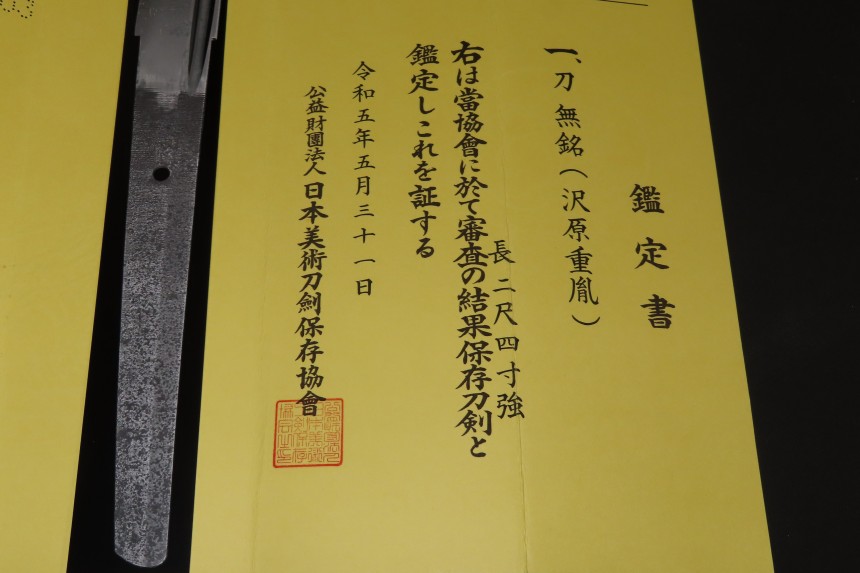 鑑定書
一、刀 無銘(沢原重胤)
長二尺四寸強
右は當協會に於て審査の結果保存刀剣と
鑑定しこれを証する
令和五年五月三十一日
公益財團法人日本美術刀劍保存協會